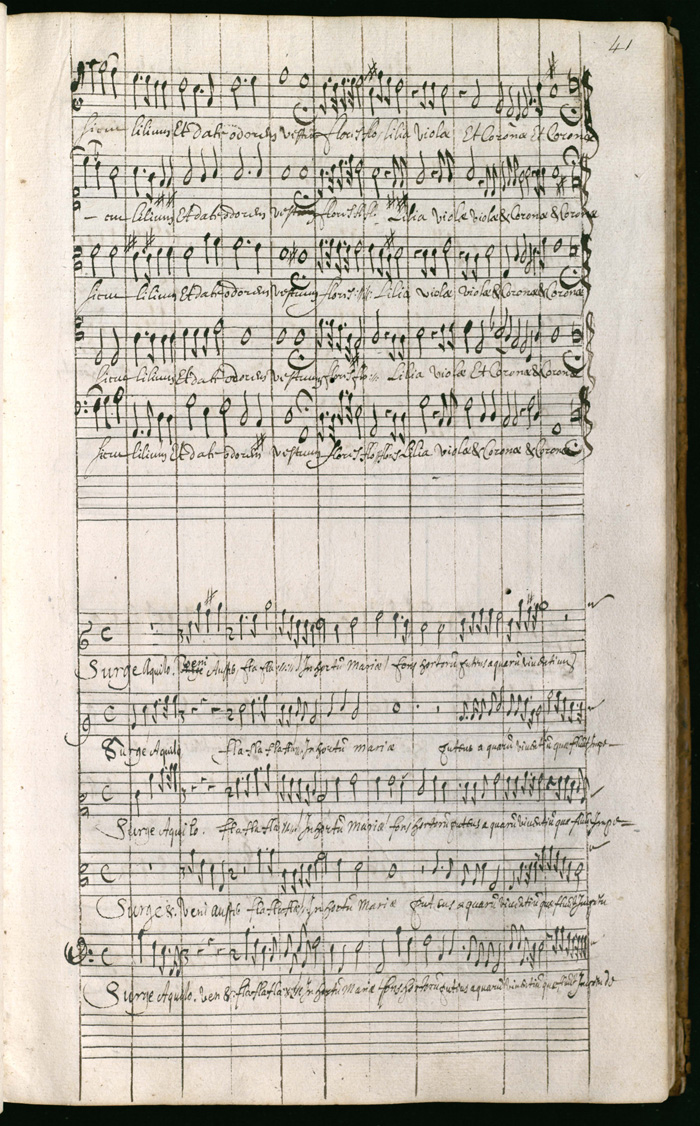 41
sicut lilium Et date odorem vestrum flores flo lilia violæ Et Coronæ Et Coronæ
– cut lilium Et date odorem vestrum flores Lilia violæ violæ & Coronæ & Coronæ
sicut lilium Et date odorem vestrum flores Lilia violæ violæ & Coronæ & Coronæ
sicut lilium Et date odorem vestrum flores Lilia violæ Et Coronæ & Coronæ
sicut lilium Et date odorem vestrum flores flo flores Lilia violæ & Coronæ & Coronæ
Surge Aquilo. veni Austr. fla fla In hortū Mariæ fons hortorū puteus aquarū viventium
Surge Aquilo fla fla fla In hortū mariæ puteus aquarū viventiū quæ fluūt Impe–
Surge Aquilo. fla fla fla In hortū Mariæ fons hortorū puteus aquarū viventiū quæ fluūt Impe–
Surge &. Veni austr. fla fla fla In hortū Mariæ puteus aquarū viventiū quæ fluūt
Surge Aquilo. ven &. fla fla fla In hortū Mariæ fons hortorū puteus aquarū viventiū quæ fluūt